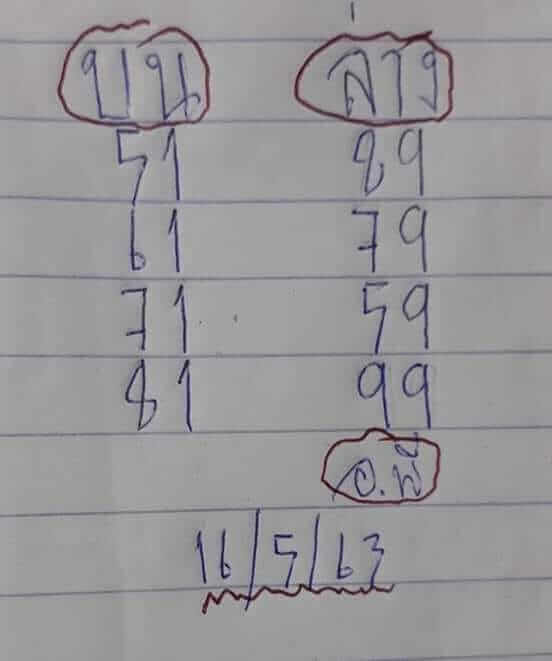 บน ล่าง
51 89
61 79
71 59
81 99
อ.พี
16/5/63